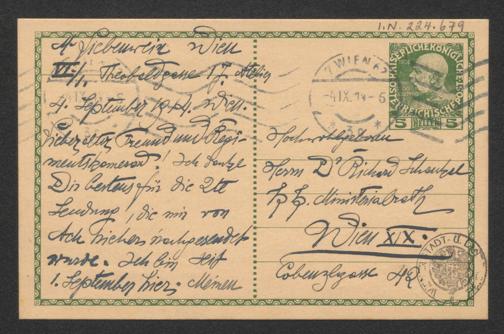 I.N. 224.679
A. Liebenwein Wien
VI/1. Theobaldgasse 17, Atelier
4. September 1914. Wien.
Lieber alter Freund und Regi-
mentskamerad! Ich danke
Dir bestens für die 2te
Sendung, die mir von
hieher nachgesendet
wurde. Ich bin seit
1. September hier. Meinen
WIEN
4.IX.14
KAISERLICHE KÖNIGLICHE
5 5
Hochwohlgeboren
Herrn Dr Richard Schaukal
k. k. Ministerialrath
Wien XIX.
Cobenzlgasse 42
STADT-